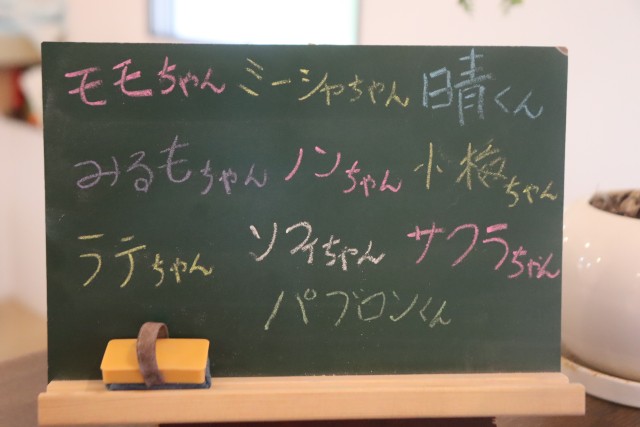 モモちゃん ミーシャちゃん 晴くん
みるもちゃん ノンちゃん 小梅ちゃん
ラテちゃん ソフィちゃん サクラちゃん
パブロンくん